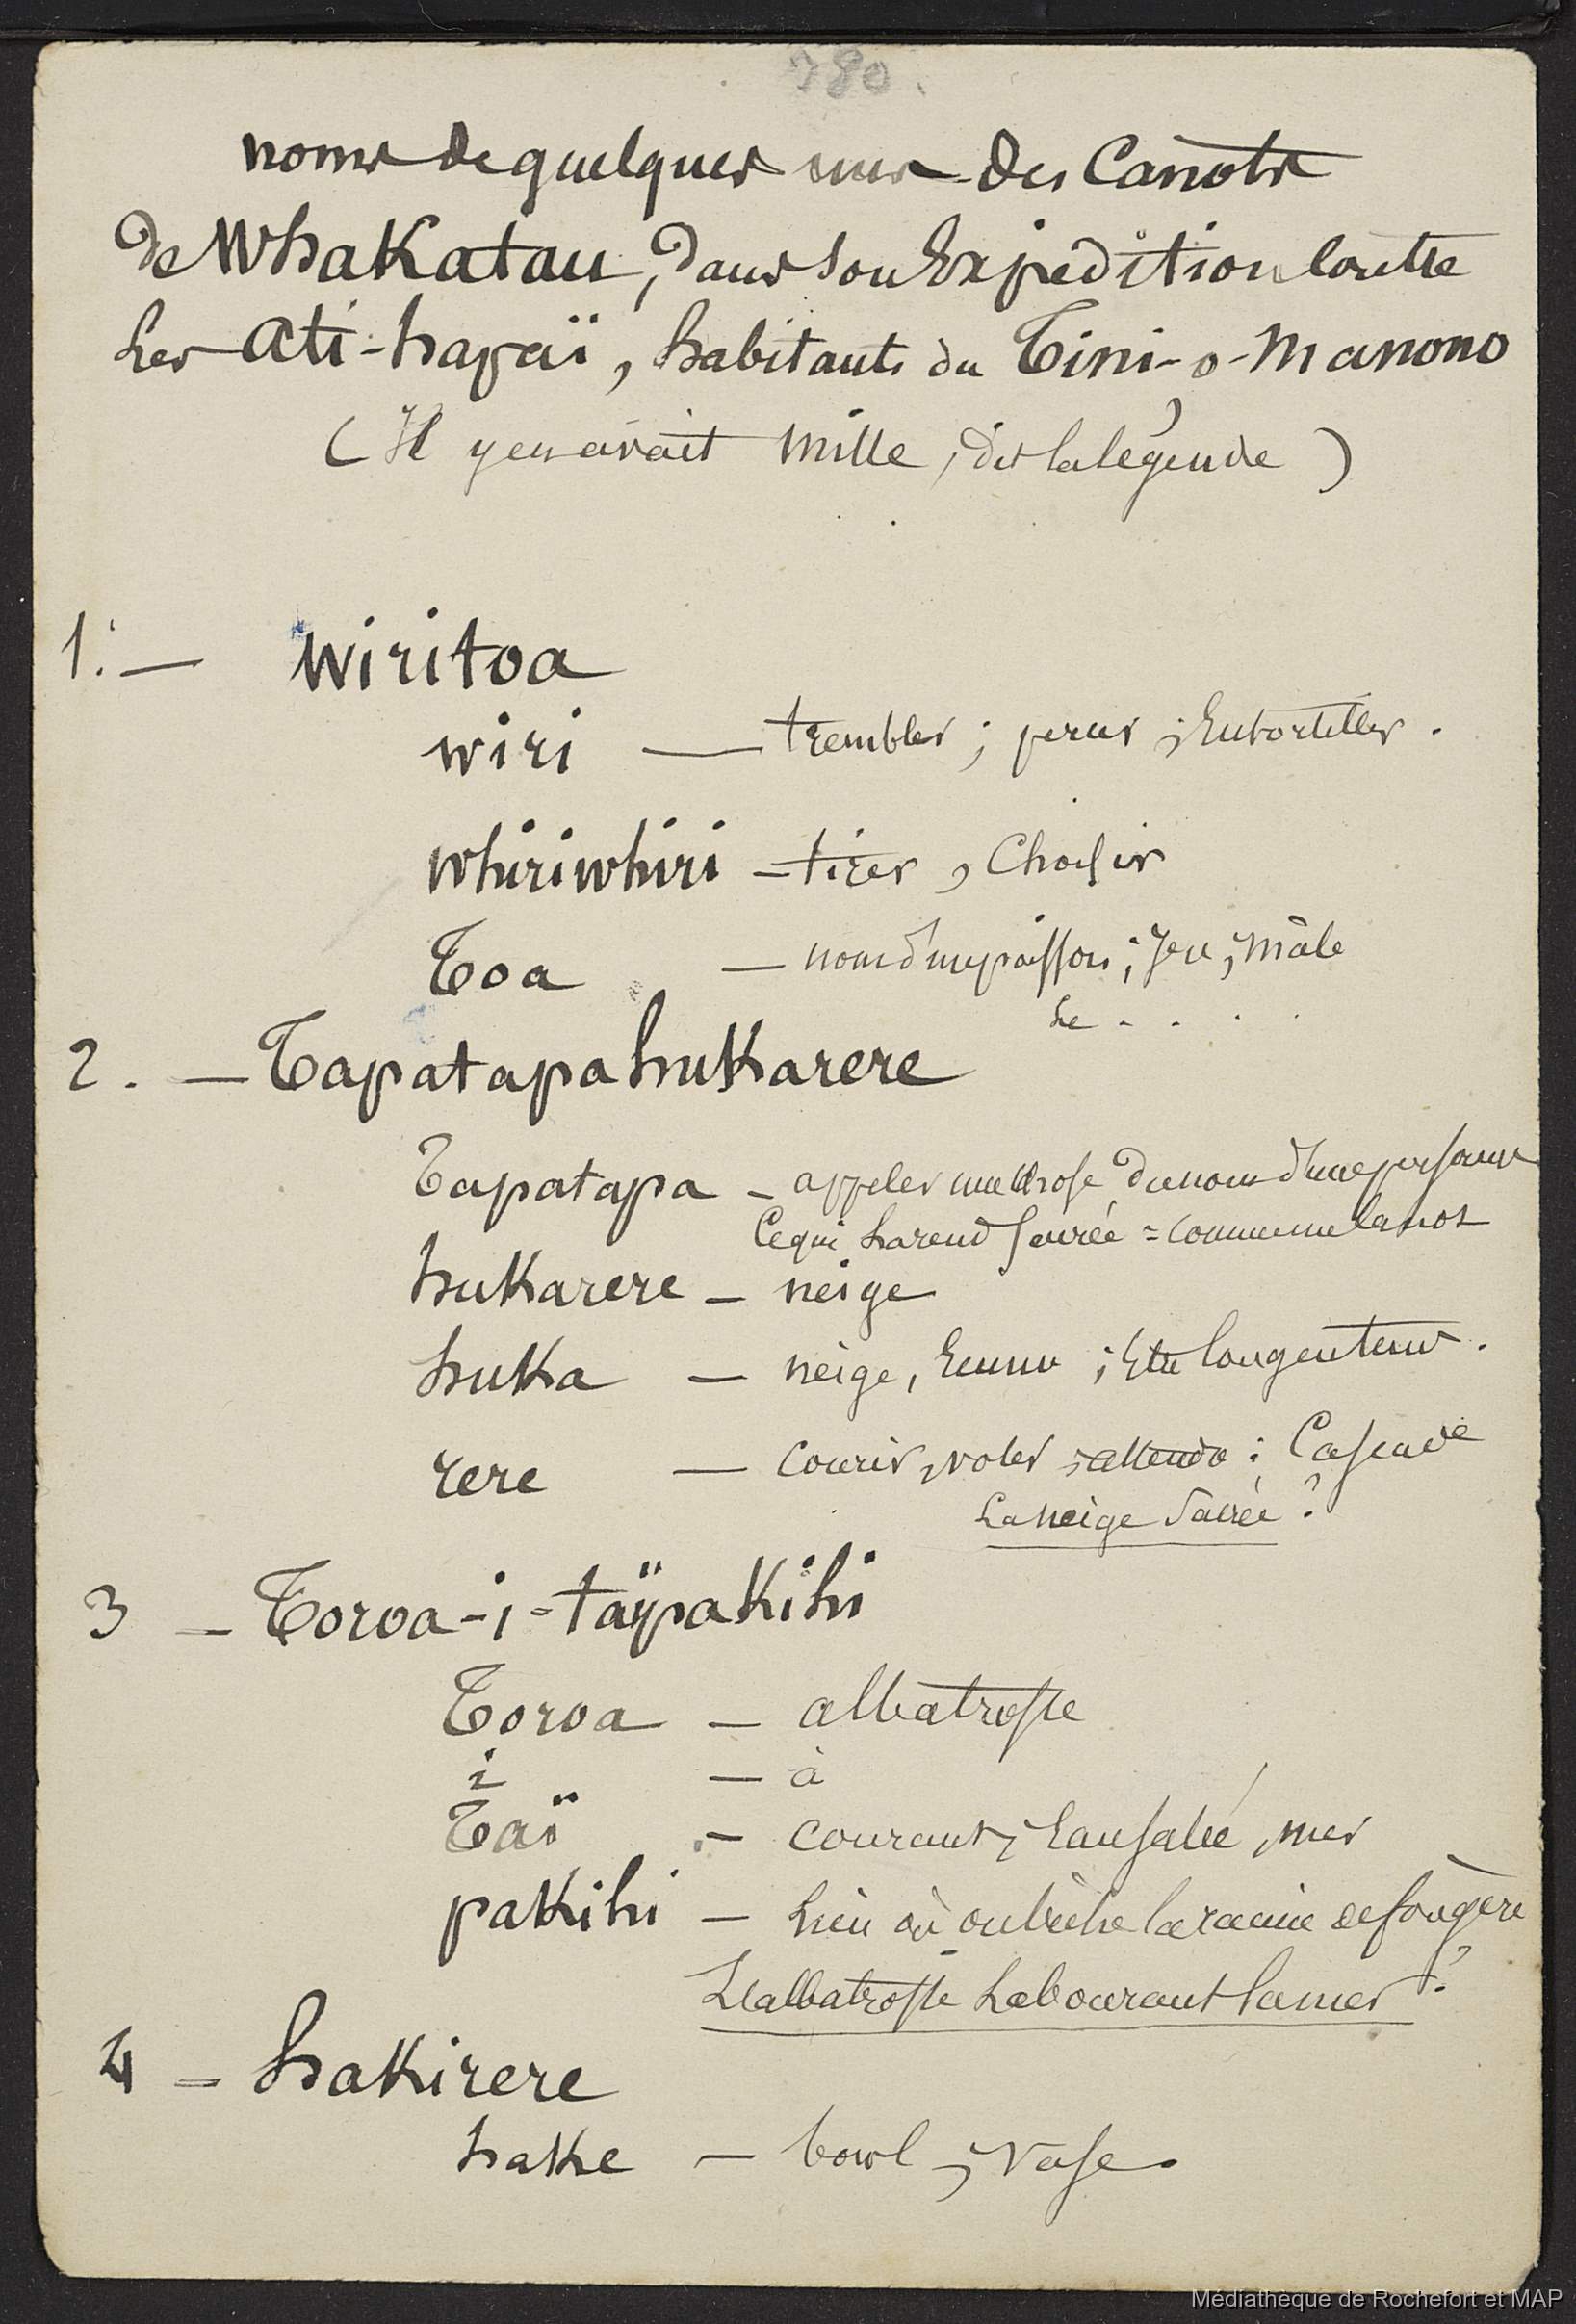 780.
noms de quelques uns des Canots
de Whakatau, dans son Expédition contre
les Ati-hapaï, habitants du Tini-o-Manono
(Il y en avait mille, dit la légende)
1. — Wiritoa
wiri — trembler; percer; Entortiller.
whiriwhiri — tirer, Choisir
Toa — nom d'un poisson; Jeu; Mâle
Le . . . .
2. — Tapatapahukarere
Tapatapa — appeler une chose du nom d'une personne
Ce qui la rend sacrée = comme une canot
hukarere — neige
huka — neige, Ecume; Etre longentems.
rere — courir, voler; attendre; Cascade
La neige Sacrée?
3 — Toroa-i-taïpakihi
Toroa — albatrosse
i — à
Taï — courant; Eau salée, mer
pakihi — lieu où on bêche la racine de fougère
L'albatrosse Labourant la mer?
4 — hakirere
hake — bowl; vase.
Médiathèque de Rochefort et MAP